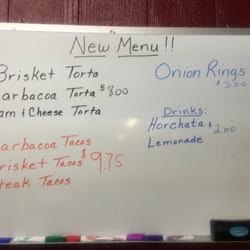 New Menu!!
Brisket Torta
arbacoa Torta $8.00
am & Cheese Torta
arbacoa Tacos
Brisket Tacos $9.75
teak Tacos
Onion Rings
$3.00
Drinks:
Horchata $2.00
Lemonade